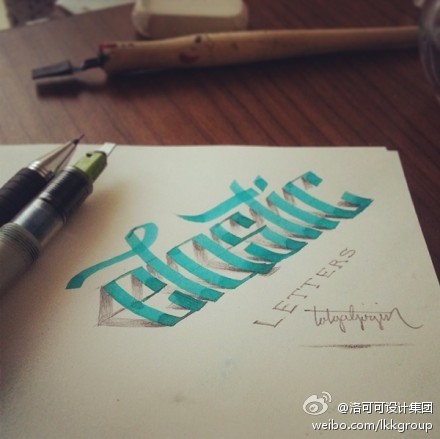 elastic
LETTERS
tolgagirgin
@洛可可设计集团
weibo.com/lkkgroup